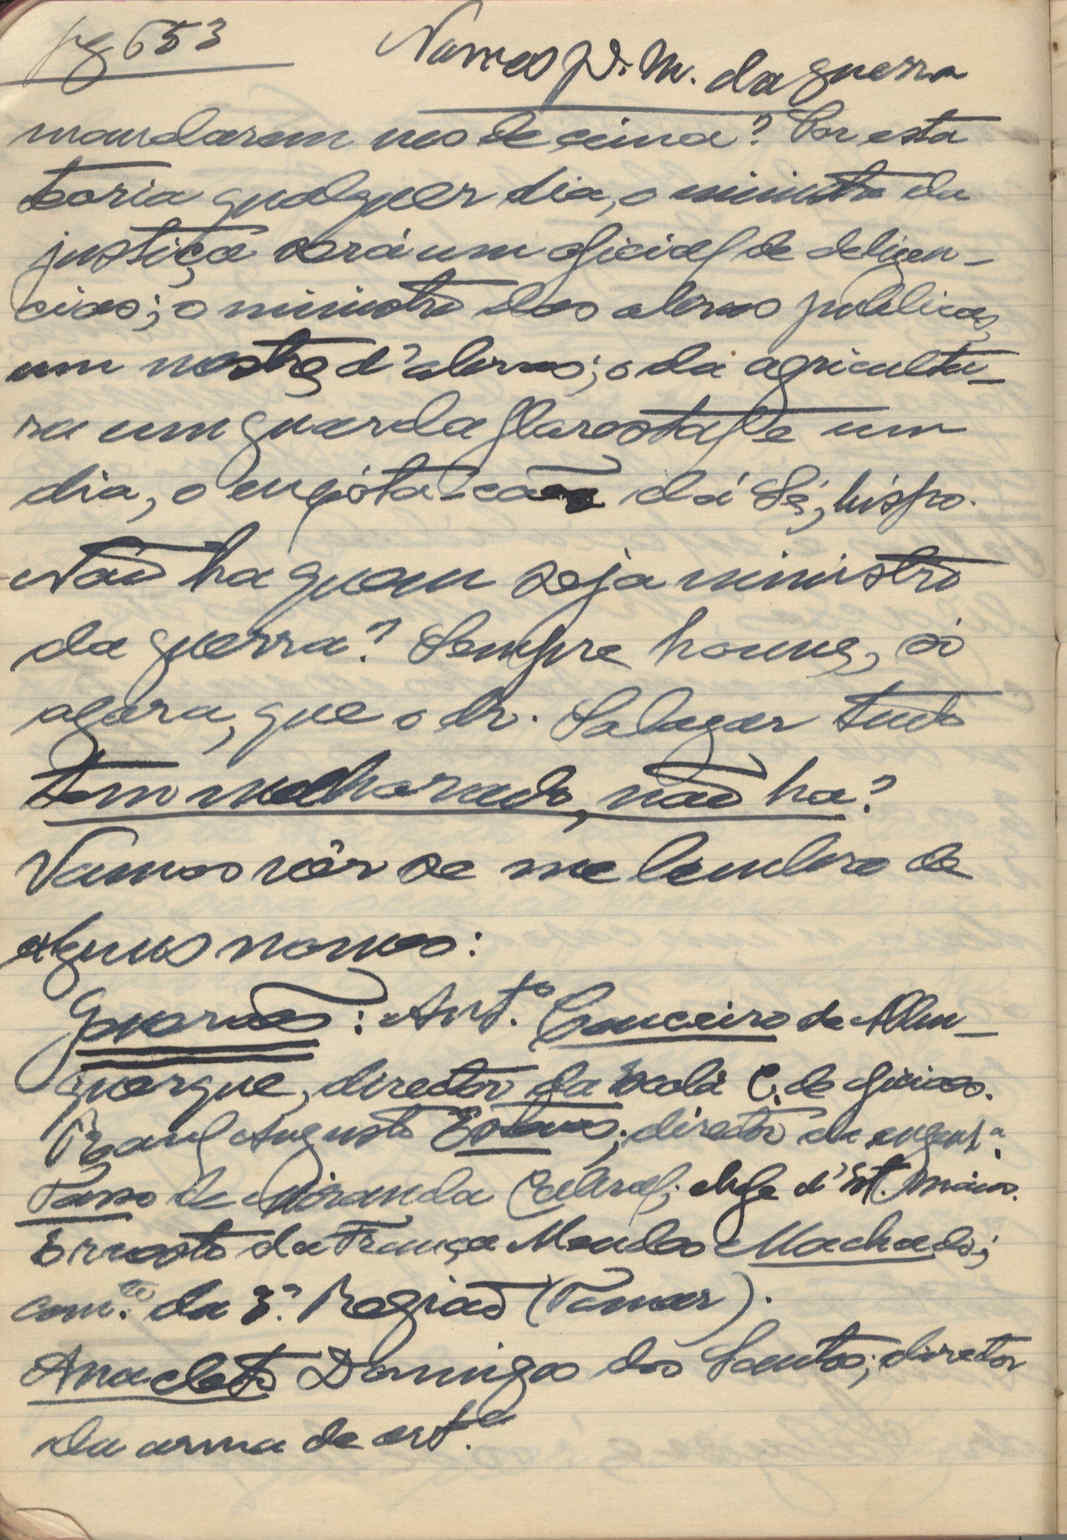 pg 653
Nomes p.ª M. da guerra
mandarem nos de cima? Por esta
teoria qualquer dia, o ministro da
justiça será um oficial de deligen-
cias; o ministro das obras publicas,
um mestre d'obras; o da agricultu-
ra um guarda florestal e um
dia, o enxóta-cães da Sé, bispo.
Não ha quem seja ministro
da guerra? Sempre houve, só
agora, que o dr. Salazar tudo
tem melhorado, não ha?
Vamos vêr se me lembro de
alguns nomes:
Generaes: Ant.º Couceiro de Albu-
querque, director da Escola C. de oficiaes.
Raul Augusto Esteves; diretor da engenh.ª
Passo de Miranda Cabral; chefe d'Est. Maior.
Ernesto da França Mendes Machado;
com.te da 3.ª Região (Tomar).
Anacleto Domingos dos Santos; diretor
da arma de art.ª